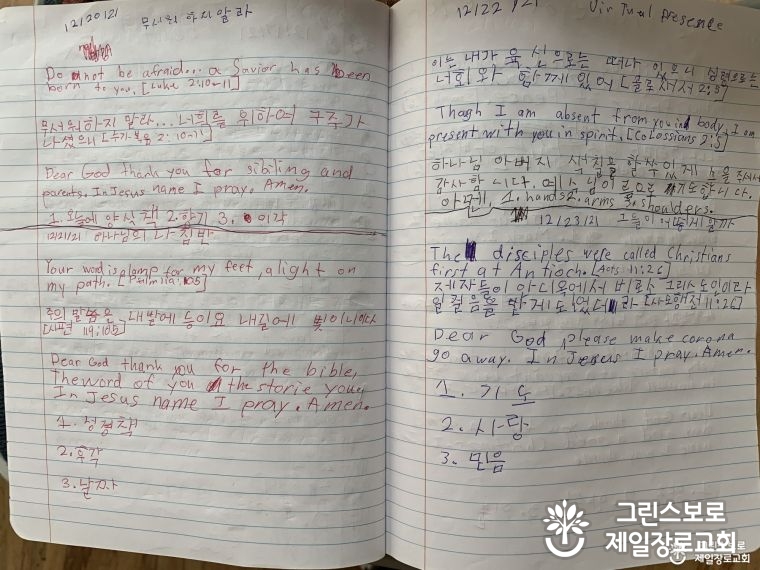 12/20/21 무서워 하지 말라
Do not be afraid... a Savior has been
born to you. [Luke 2:10-11]
무서워하지 말라... 너희를 위하여 구주가
나셨으니 [누가복음 2:10-11]
Dear God thank you for sibiling and
parents. In Jesus name I pray. Amen.
1. 오늘에 양식책 2. 학기 3.
12/21/21 하나님의 나침반
Your word is a lamp for my feet, a light on
my path. [Psalm 119:105]
주의 말씀은 내 발에 등이요 내 길에 빛이니이다
[시편 119:105]
Dear God thank you for the bible,
The word of you the storie you.
In Jesus name I pray. Amen.
1. 성경책
2. 후각
3. 날자
12/22/21 Virtual presence
이는 내가 육신으로는 떠나 있으나 심령으로는
너희와 함께 있어 [골로새서 2:5]
Though I am absent from you in body, I am
present with you in spirit. [Colossians 2:5]
하나님 아버지
감사합니다. 예수님 이름으로 기도합니다.
아멘. 1. hands 2. arms 3. shoulders.
12/23/21 그들이 어떻게 할까
The disciples were called Christians
first at Antioch. [Acts 11:26]
제자들이 안디옥에서 비로소 그리스도인이라
일컬음을 받게 되었더라 [사도행전 11:26]
Dear God, please make corona
go away. In Jesus I pray. Amen.
1. 기도
2. 사랑
3. 믿음
그린스보로
제일장로교회
그린스보로
제일장로교회